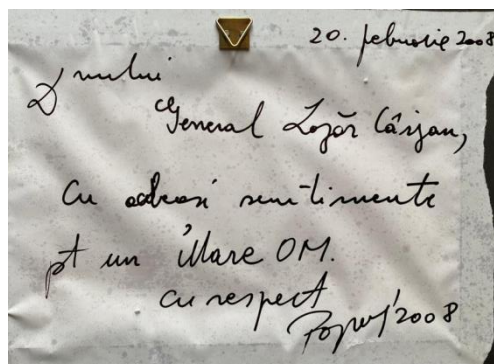 20. februarie 2008
D nului
General Lazăr Cârjan,
Cu sentimente
pt un Mare OM.
cu respect
2008